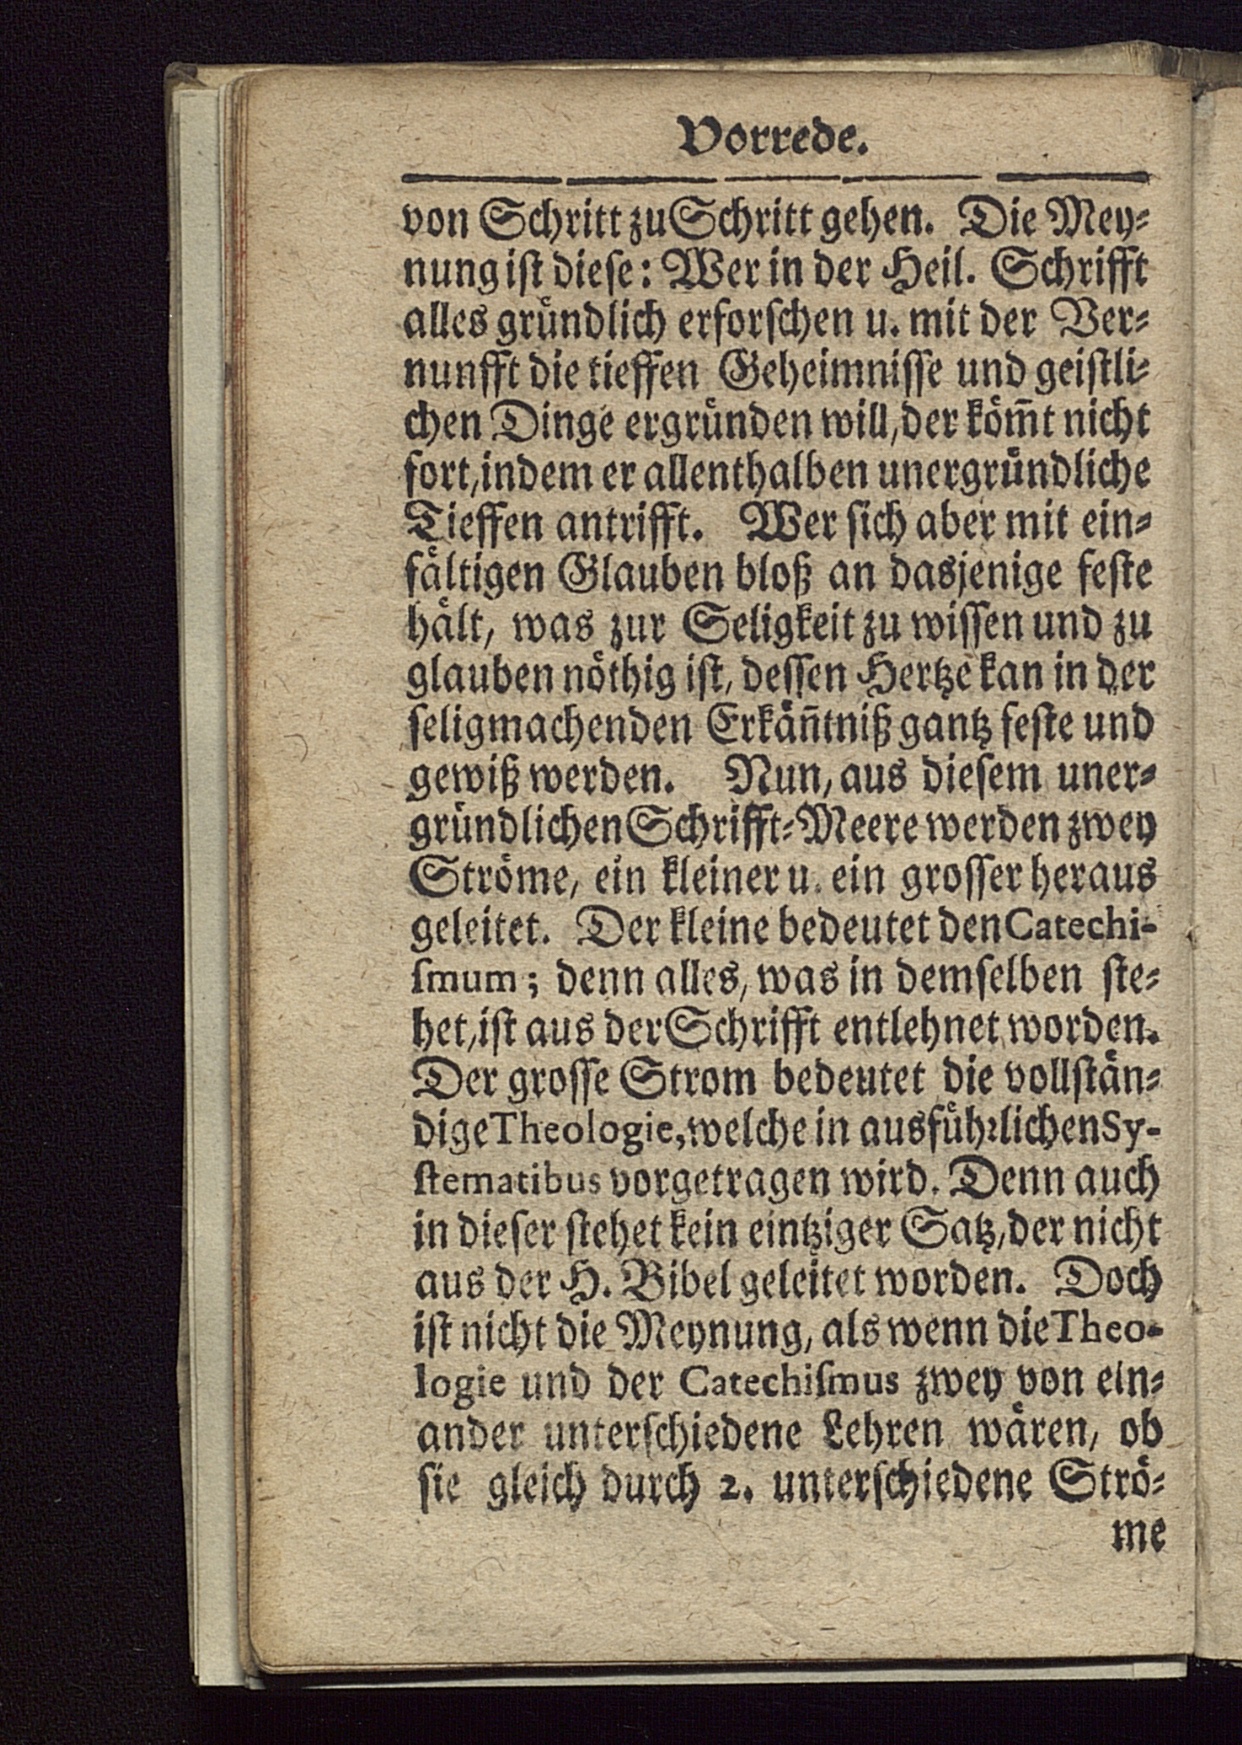 Vorrede.
von Schritt zu Schritt gehen. Die Mey⸗
nung ist diese: Wer in der Heil. Schrifft
alles gründlich erforschen u. mit der Ver⸗
nunfft die tieffen Geheimnisse und geistli⸗
chen Dinge ergründen will, der köm̃t nicht
fort, indem er allenthalben unergründliche
Tieffen antrifft. Wer sich aber mit ein⸗
fältigen Glauben bloß an dasjenige feste
hält, was zur Seligkeit zu wissen und zu
glauben nöthig ist, dessen Hertze kan in der
seligmachenden Erkäñtniß gantz feste und
gewiß werden. Nun, aus diesem uner⸗
gründlichen Schrifft⸗Meere werden zwey
Ströme, ein kleiner u. ein grosser heraus
geleitet. Der kleine bedeutet den Catechi-
smum; denn alles, was in demselben ste⸗
het, ist aus der Schrifft entlehnet worden.
Der grosse Strom bedeutet die vollstän⸗
dige Theologie, welche in ausführlichen Sy-
stematibus vorgetragen wird. Denn auch
in dieser stehet kein eintziger Satz, der nicht
aus der H. Bibel geleitet worden. Doch
ist nicht die Meynung, als wenn die Theo-
logie und der Catechismus zwey von ein⸗
ander unterschiedene Lehren wären, ob
sie gleich durch 2. unterschiedene Strö⸗
me